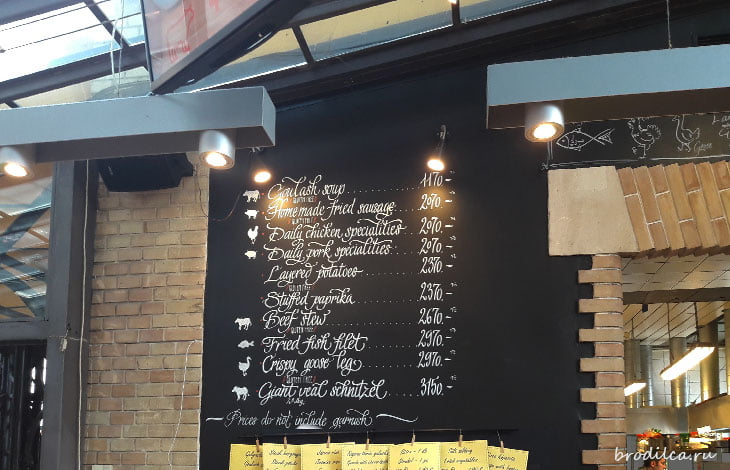 Goulash soup 1170.-
GLUTEN FREE!
Homemade fried sausage 2070.-
GLUTEN FREE!
Daily chicken specialities 2070.-
Daily pork specialities 2070.-
Layered potatoes 2370.-
GLUTEN FREE!
Stuffed paprika 2370.-
Beef stew 2670.-
GLUTEN FREE!
Fried fish filet 2970.-
Crispy goose leg 2970.-
GLUTEN FREE!
Giant veal schnitzel 3150.-
Prices do not include garnish
Goose
brodilca.ru